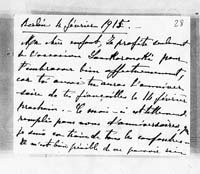 Berlin 4 février 1915. 28
Ma chère enfant, Je profite seulement
de l'occasion Lanckoronski pour
t'embrasser bien affectueusement,
car toi aussi tu auras l'anniver-
saire de tes fiançailles le 16 février
prochain. Ce mois-ci est tellement
rempli pour nous d'anniversaires,
je suis de les confondre.
Il m'est bien pénible de ne pouvoir